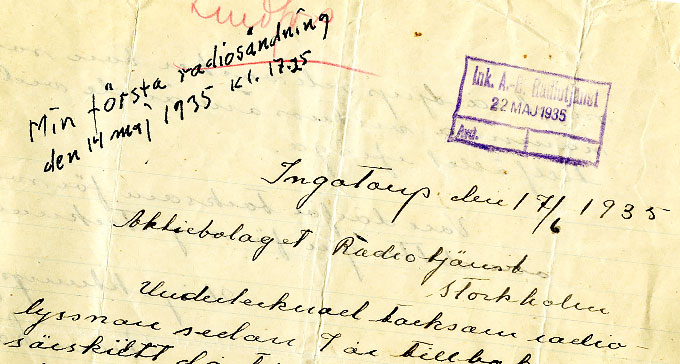 Min första radiosändning
den 14 maj 1935 kl. 17.25
Ink. A.-B. Radiotjänst
22 MAJ 1935
Avd.
Ingatorp den 17/6 1935
Aktiebolaget Radiotjänst
Stockholm
Undertecknad tacksam radio-
lyssnare sedan 9 år tillbak
särskilt då